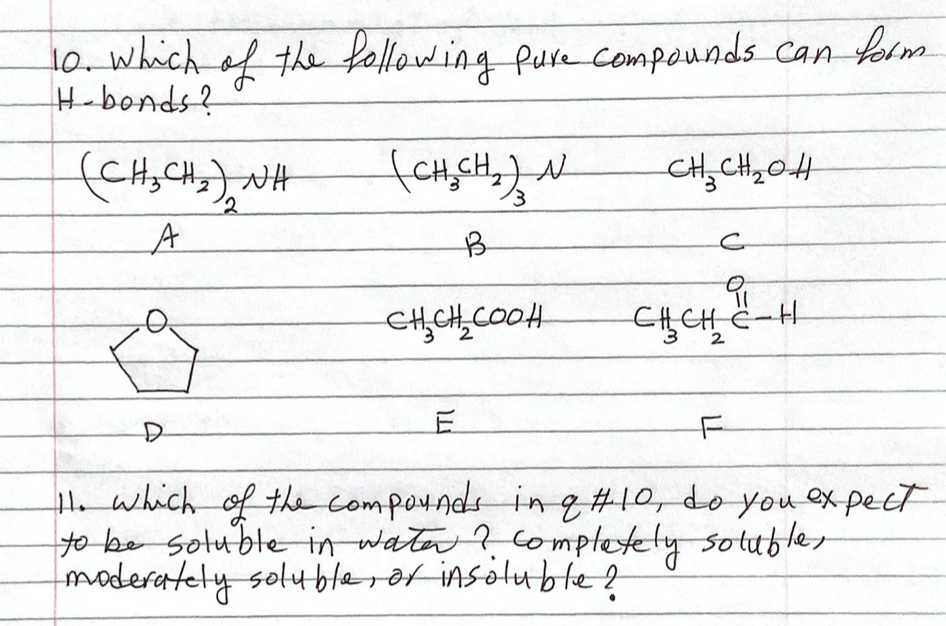 10. Which of the following pure compounds can form
H-bonds?
(CH₃CH₂)₂NH (CH₃CH₂)₃N CH₃CH₂OH
A B C
O
O CH₃CH₂COOH CH₃CH₂C-H
D E F
11. Which of the compounds in q #10, do you expect
to be soluble in water? Completely soluble,
moderately soluble, or insoluble?